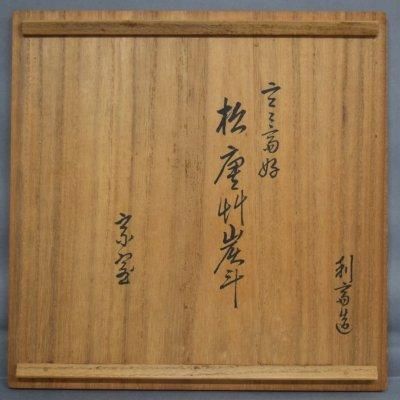 利斎造
玄々斎好
松唐艸炭斗
宗室